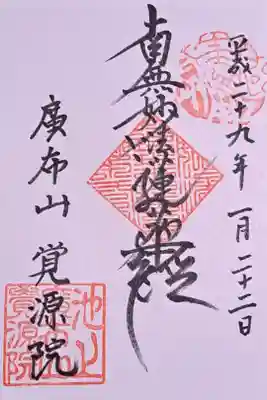 平成二十九年 一月 二十二日
南無妙法蓮華経
廣布山 覚源院
池上
覚源院